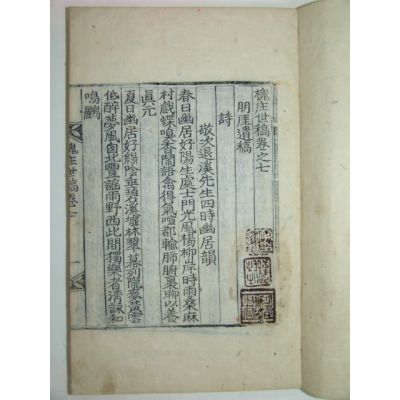 槐庄世稿卷之七
朋崖遺稿
詩
敬次退溪先生四時幽居韻
春日幽居好陽生處士門光風楊柳岸時雨桑麻
村戱蝶嗅香鬧語禽得氣喧都輸肺腑裏聊以養
眞元
夏日幽居好綠陰石溪林幕列隴麥黃雲
低醉夢風囱北豊謠雨野西此間獨樂者淸詠和
鳴鸝
槐庄世稿卷七